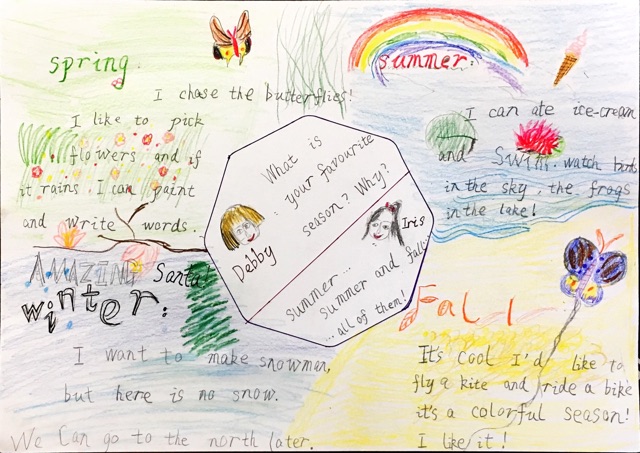 spring.
I chase the butterflies!
I like to pick
flowers and if
it rains I can paint
and write words.
summer:
I can ate ice-cream
and swim. watch birds
in the sky, the frogs
in the lake!
What is
your favourite
season? Why?
Debby
Iris
summer...
summer and fall
...all of them!
AMAZING Santa!
winter:
I want to make snowman,
but here is no snow.
We can go to the north later.
Fall
It's cool I'd like to
fly a kite and ride a bike
it's a colorful season!
I like it!